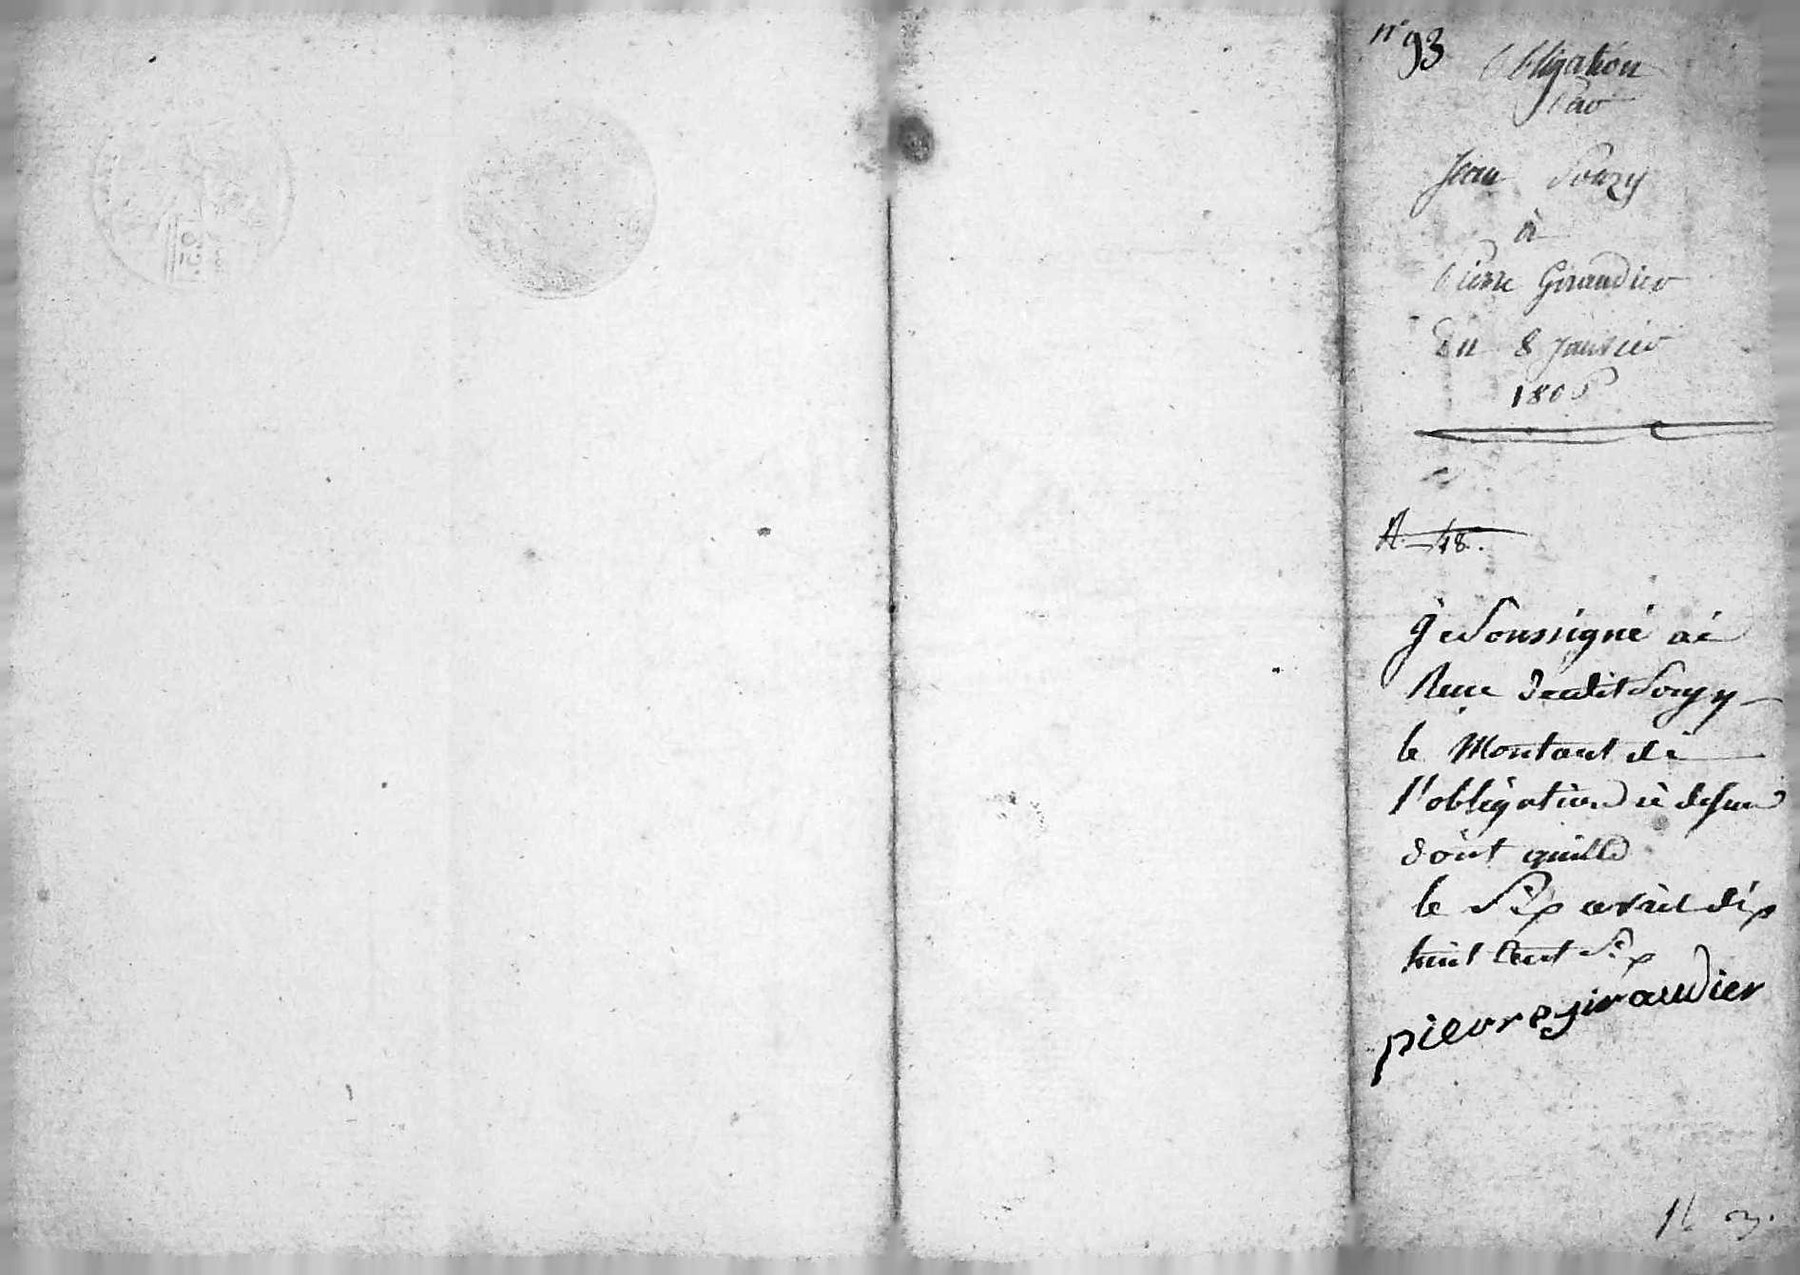 n° 93
Obligation
Par
Jean Souzy
à
Pierre Giraudier
Du 8 Janvier
1806
Je Soussigné ai
Reçu dudit Souzy
le Montant de
l'obligation
dont quitte
le Six avril dix
huit Cent Six
pierre giraudier